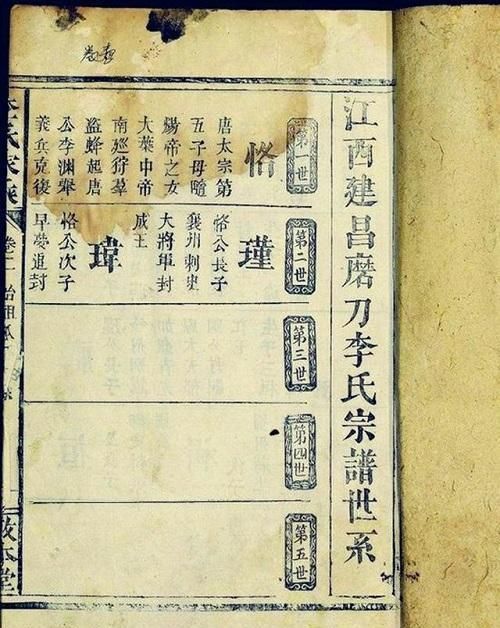 江西建昌磨刀李氏宗譜世系
第一世
恪
唐太宗第
五子母隨
煬帝之女
大葉中帝
南廵狩羣
盗蜂起唐
公李淵舉
義兵克復
第二世
瑾
恪公長子
襄州刺史
大將軍封
成王
瑋
恪公次子
早薨追封
第三世
第四世
第五世
李氏家乘
卷一